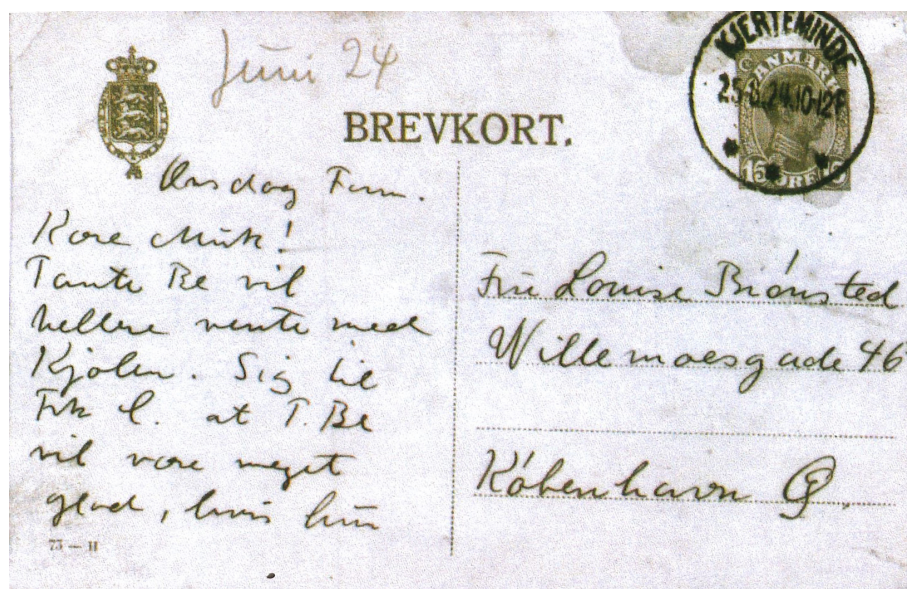 Juni 24
BREVKORT.
KJERTEMINDE
25.6.24.10-12F
DANMARK
15 ØRE 15
Onsdag Form.
Kære Muk!
Tante Be vil
hellere vente med
Kjolen. Sig til
Frk C. at T. Be
vil være meget
glad, hvis hun
73 — H
Fru Louise Brønsted
Willemoesgade 46
København Ø